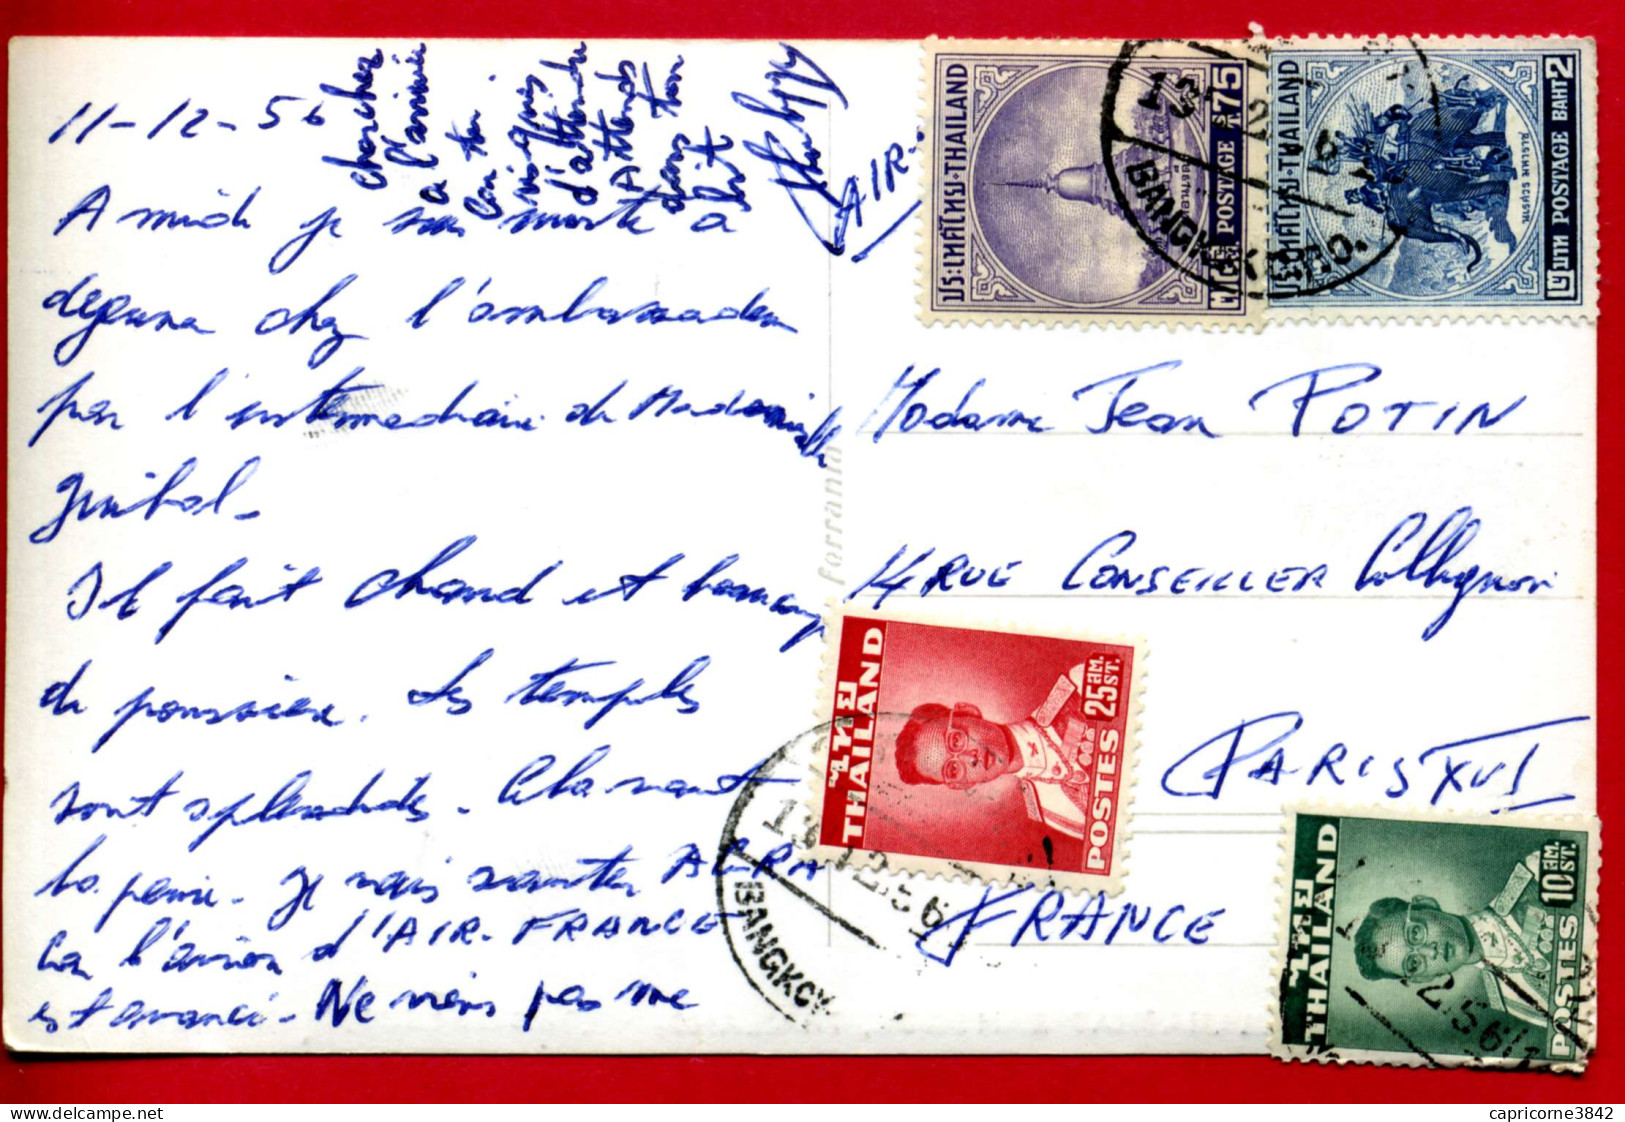 11-12-56
A midi je suis invité à
déjeuner chez l'ambassadeur
par l'intermédiaire de Mademoiselle
Guibal-
Il fait chaud et beaucoup
de poussière. Les temples
sont splendides. Cela vaut
la peine. Je vais sauter AGRA
car l'avion d'AIR-FRANCE
est avancé - Ne viens pas me
chercher
à l'arrivée
car tu
risques
d'attendre
Attends
dans ton
lit
AIR-
Madame Jean POTIN
4 RUE CONSEILLER Collignon
PARIS XVI
FRANCE
ferrania
ประเทศไทย·THAILAND
POSTAGE ST.75
ประเทศไทย·THAILAND
๒ บาท POSTAGE BAHT 2
THAILAND
25 ST.
POSTES
THAILAND
10 ST.
POSTES
BANGKOK G.P.O.
13 12 56
BANGKOK
12.56
capricorne3842